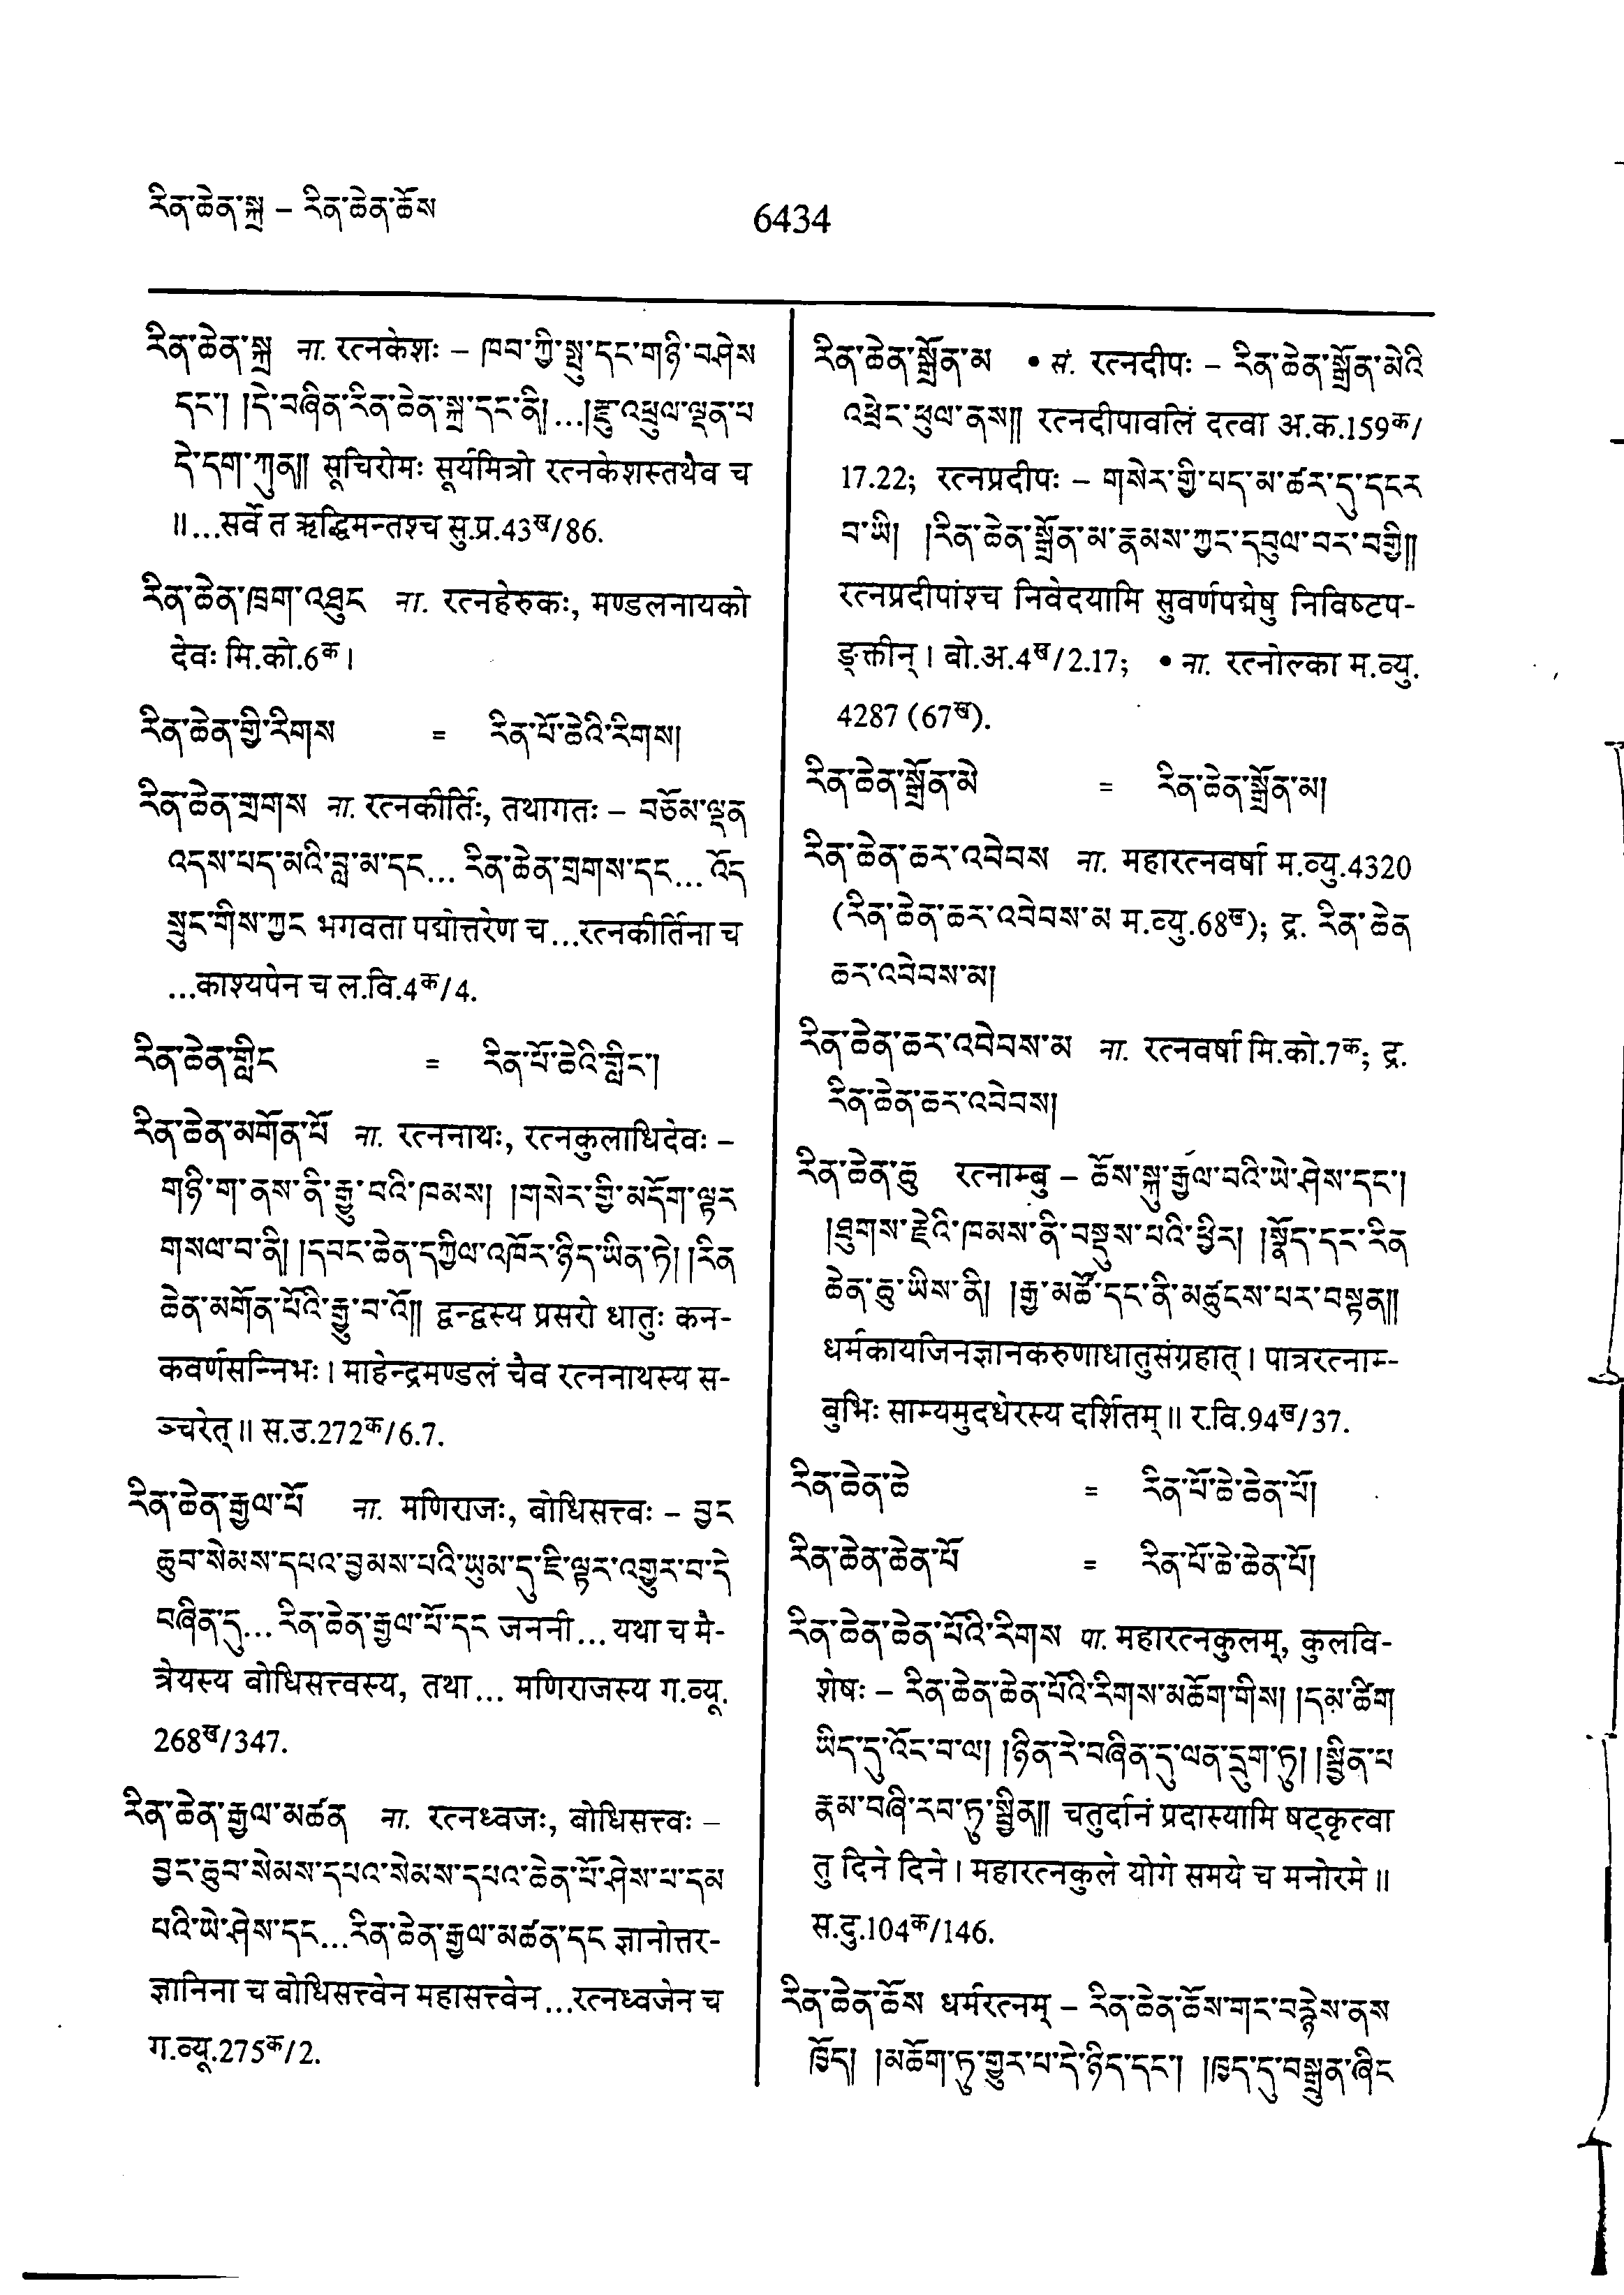 རིན་ཆེན་སྐྲ – རིན་ཆེན་ཆོས
6434
རིན་ཆེན་སྐྲ ना. रत्नकेशः – ཁབ་ཀྱི་སྤུ་དང་གཉི་བཤེས
དང་། །དེ་བཞིན་རིན་ཆེན་སྐྲ་དང་ནི།...།རྫུ་འཕྲུལ་ལྡན་པ
དེ་དག་ཀུན།། सूचिरोमः सूर्यमित्रो रत्नकेशस्तथैव च
॥...सर्वे त ऋद्धिमन्तश्च सु.प्र.43ख/86.
རིན་ཆེན་ཁྲག་འཐུང ना. रत्नहेरुकः, मण्डलनायको
देवः मि.को.6क।
རིན་ཆེན་གྱི་རིགས = རིན་པོ་ཆེའི་རིགས།
རིན་ཆེན་གྲགས ना. रत्नकीर्तिः, तथागतः – བཅོམ་ལྡན
འདས་པད་མའི་བླ་མ་དང... རིན་ཆེན་གྲགས་དང... འོད
སྲུང་གིས་ཀྱང भगवता पद्मोत्तरेण च...रत्नकीर्तिना च
...काश्यपेन च ल.वि.4क/4.
རིན་ཆེན་གླིང = རིན་པོ་ཆེའི་གླིང་།
རིན་ཆེན་མགོན་པོ ना. रत्ननाथः, रत्नकुलाधिदेवः –
གཉི་ག་ནས་ནི་རྒྱུ་བའི་ཁམས། །གསེར་གྱི་མདོག་ལྟར
གསལ་བ་ནི། །དབང་ཆེན་དཀྱིལ་འཁོར་ཉིད་ཡིན་ཏེ། །རིན
ཆེན་མགོན་པོའི་རྒྱུ་བ་འོ།། द्वन्द्वस्य प्रसरो धातुः कन-
कवर्णसन्निभः। माहेन्द्रमण्डलं चैव रत्ननाथस्य स-
ञ्चरेत्॥ स.उ.272क/6.7.
རིན་ཆེན་རྒྱལ་པོ ना. मणिराजः, बोधिसत्त्वः – བྱང
ཆུབ་སེམས་དཔའ་བྱམས་པའི་ཡུམ་དུ་ཇི་ལྟར་འགྱུར་བ་དེ
བཞིན་དུ... རིན་ཆེན་རྒྱལ་པོ་དང जननी... यथा च मै-
त्रेयस्य बोधिसत्त्वस्य, तथा... मणिराजस्य ग.व्यू.
268ख/347.
རིན་ཆེན་རྒྱལ་མཚན ना. रत्नध्वजः, बोधिसत्त्वः –
བྱང་ཆུབ་སེམས་དཔའ་སེམས་དཔའ་ཆེན་པོ་ཤེས་པ་དམ
པའི་ཡེ་ཤེས་དང...རིན་ཆེན་རྒྱལ་མཚན་དང ज्ञानोत्तर-
ज्ञानिना च बोधिसत्त्वेन महासत्त्वेन...रत्नध्वजेन च
ग.व्यू.275क/2.
རིན་ཆེན་སྒྲོན་མ • सं. रत्नदीपः – རིན་ཆེན་སྒྲོན་མེའི
འཕྲེང་ཕུལ་ནས།། रत्नदीपावलिं दत्वा अ.क.159क/
17.22; रत्नप्रदीपः – གསེར་གྱི་པད་མ་ཚར་དུ་དངར
བ་ཡི། །རིན་ཆེན་སྒྲོན་མ་རྣམས་ཀྱང་དབུལ་བར་བགྱི།།
रत्नप्रदीपांश्च निवेदयामि सुवर्णपद्मेषु निविष्टप-
ङ्क्तीन्। बो.अ.4ख/2.17; • ना. रत्नोल्का म.व्यु.
4287 (67ख).
རིན་ཆེན་སྒྲོན་མེ = རིན་ཆེན་སྒྲོན་མ།
རིན་ཆེན་ཆར་འབེབས ना. महारत्नवर्षा म.व्यु.4320
(རིན་ཆེན་ཆར་འབེབས་མ म.व्यु.68ख); द्र. རིན་ཆེན
ཆར་འབེབས་མ།
རིན་ཆེན་ཆར་འབེབས་མ ना. रत्नवर्षा मि.को.7क; द्र.
རིན་ཆེན་ཆར་འབེབས།
རིན་ཆེན་ཆུ रत्नाम्बु – ཆོས་སྐུ་རྒྱལ་བའི་ཡེ་ཤེས་དང་།
།ཐུགས་རྗེའི་ཁམས་ནི་བསྡུས་པའི་ཕྱིར། །སྣོད་དང་རིན
ཆེན་ཆུ་ཡིས་ནི། །རྒྱ་མཚོ་དང་ནི་མཚུངས་པར་བསྟན།།
धर्मकायजिनज्ञानकरुणाधातुसंग्रहात्। पात्ररत्नाम-
बुभिः साम्यमुदधेरस्य दर्शितम्॥ र.वि.94ख/37.
རིན་ཆེན་ཆེ = རིན་པོ་ཆེ་ཆེན་པོ།
རིན་ཆེན་ཆེན་པོ = རིན་པོ་ཆེ་ཆེན་པོ།
རིན་ཆེན་ཆེན་པོའི་རིགས पा. महारत्नकुलम्, कुलवि-
शेषः – རིན་ཆེན་ཆེན་པོའི་རིགས་མཆོག་གིས། །དམ་ཚིག
ཡིད་དུ་འོང་བ་ལ། །ཉིན་རེ་བཞིན་དུ་ལན་དྲུག་ཏུ། །སྦྱིན་པ
རྣམ་བཞི་རབ་ཏུ་སྦྱིན།། चतुर्दानं प्रदास्यामि षट्कृत्वा
तु दिने दिने। महारत्नकुले योगे समये च मनोरमे॥
स.दु.104क/146.
རིན་ཆེན་ཆོས धर्मरत्नम् – རིན་ཆེན་ཆོས་གང་བརྙེས་ནས
ཁྱོད། །མཆོག་ཏུ་གྱུར་པ་དེ་ཉིད་དང་། །ཁྱད་དུ་བསྒྲུན་ཞིང